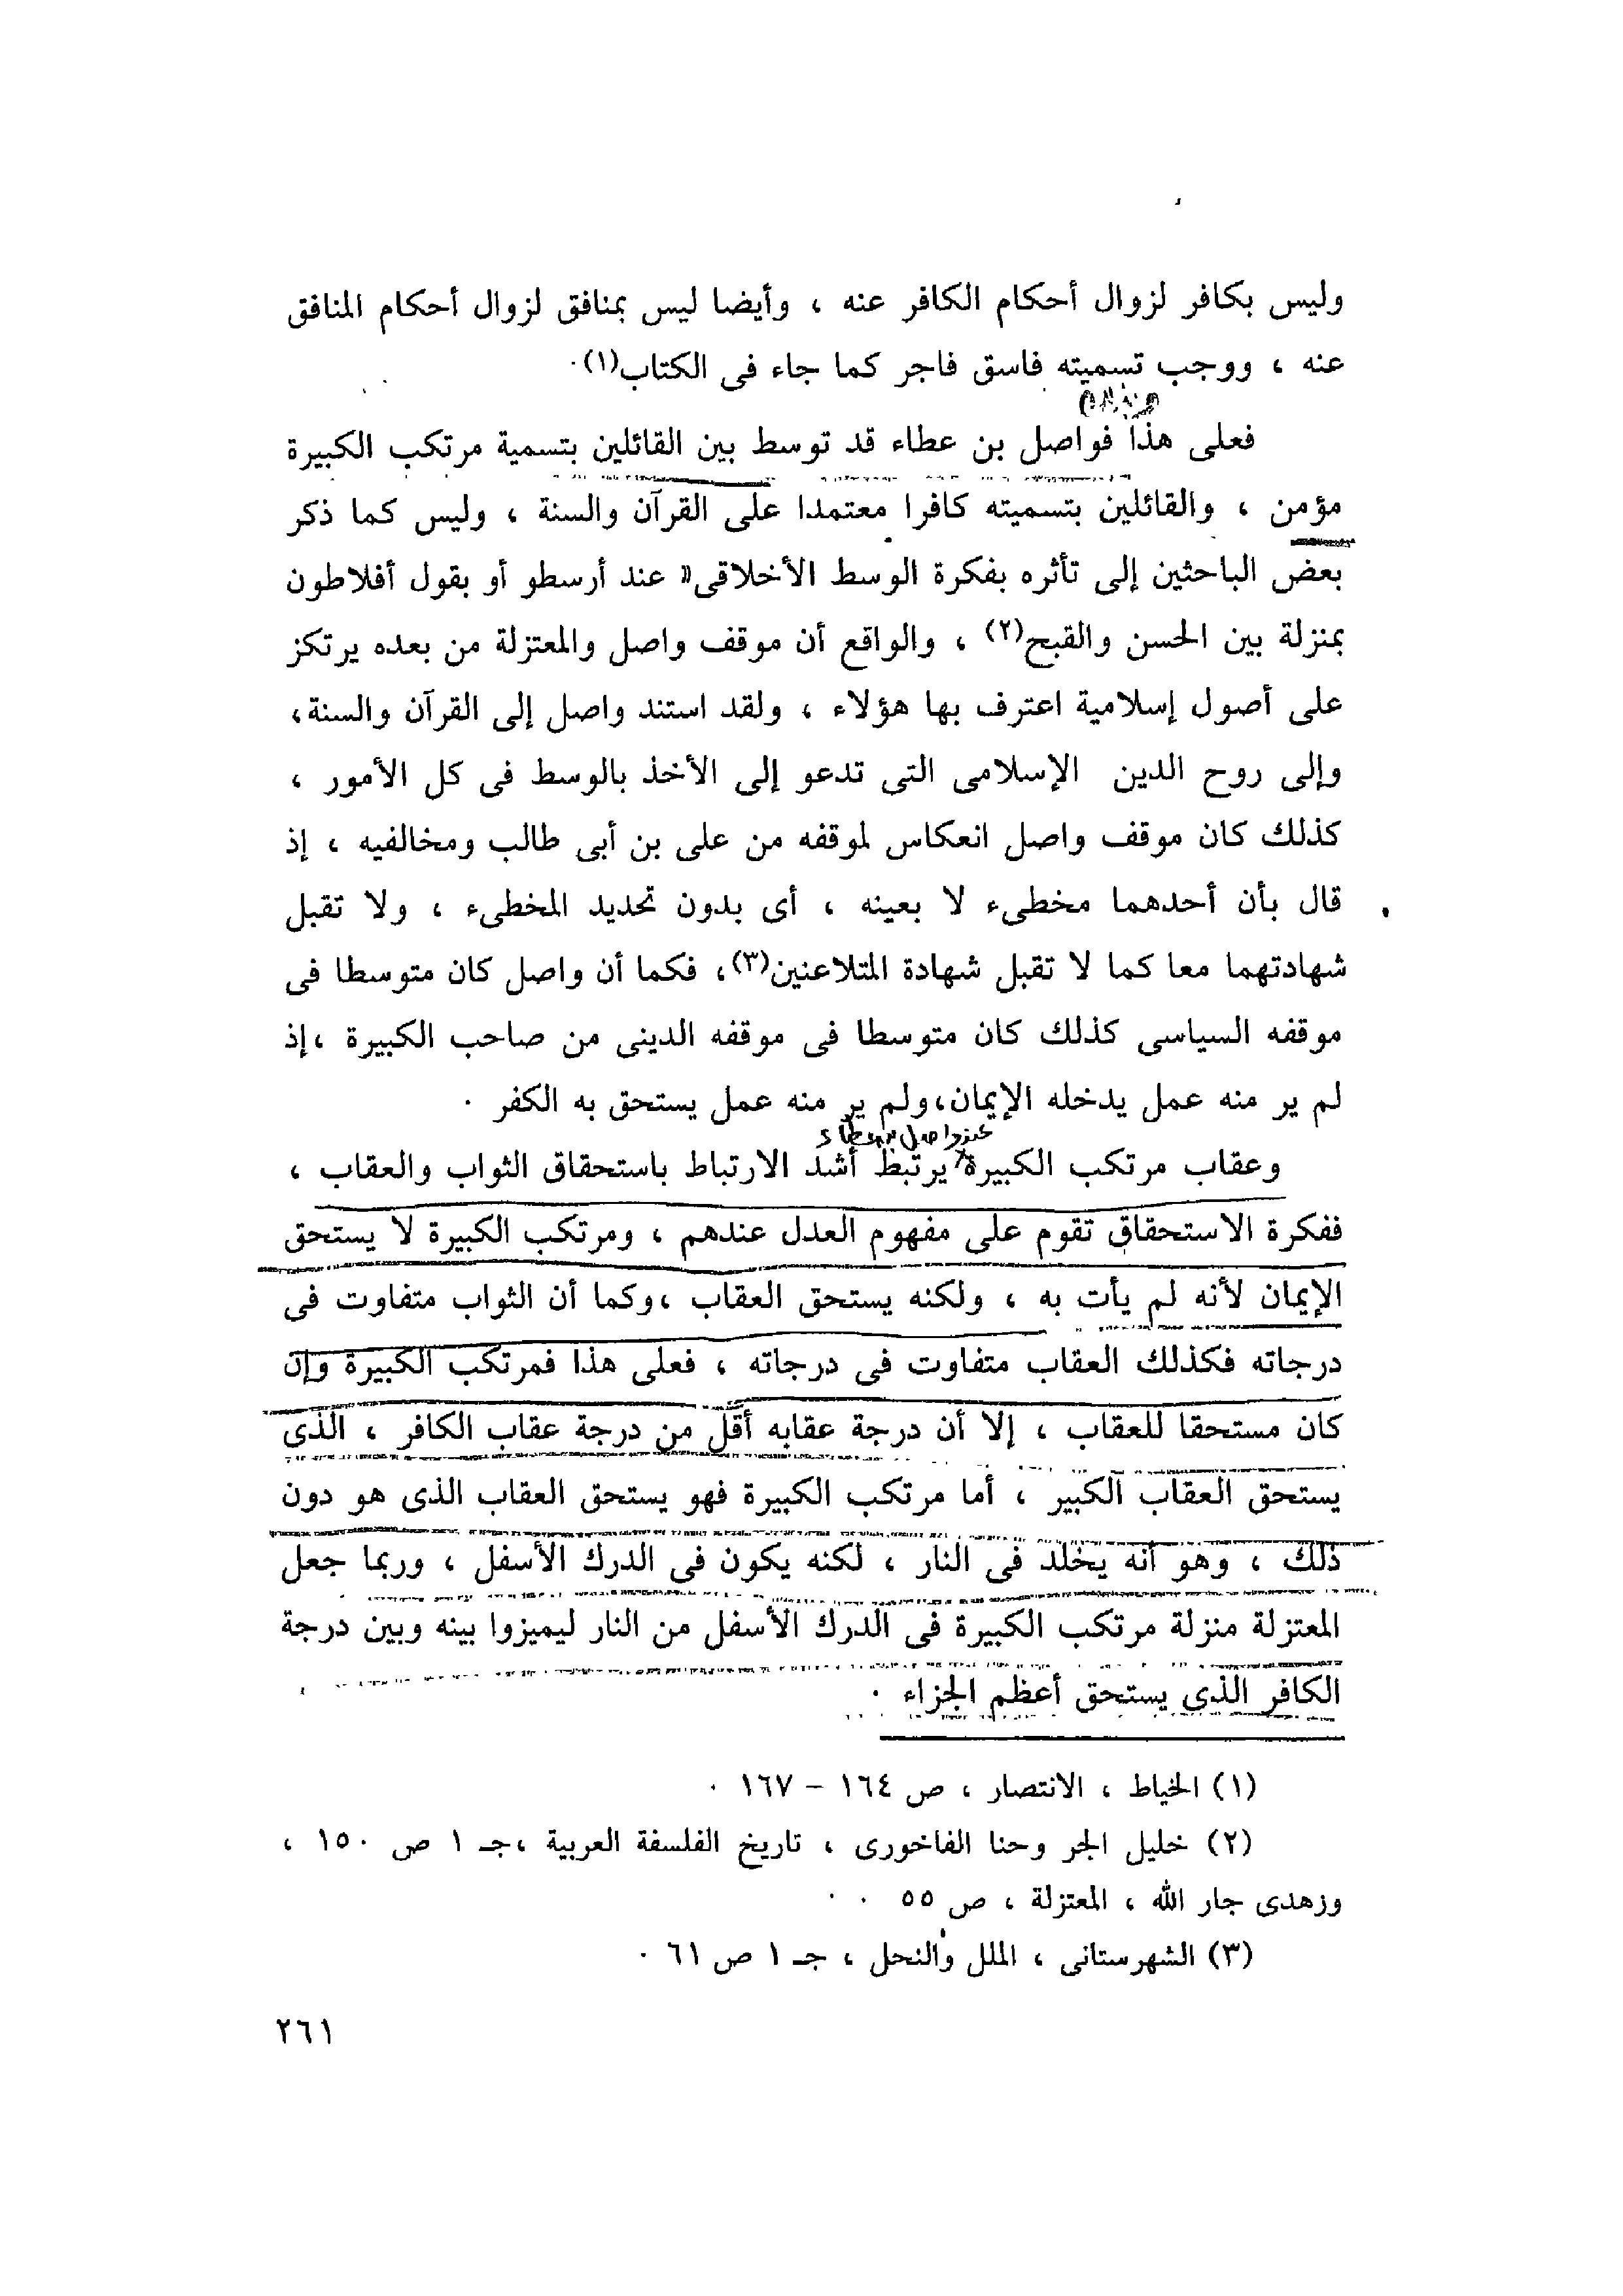 وليس بكافر لزوال أحكام الكافر عنه ، وأيضا ليس بمنافق لزوال أحكام المنافق
عنه ، ووجب تسميته فاسق فاجر كما جاء فى الكتاب(١)٠
فعلى هذا فواصل بن عطاء قد توسط بين القائلين بتسمية مرتكب الكبيرة
مؤمن ، والقائلين بتسميته كافرا معتمدا على القرآن والسنة ، وليس كما ذكر
بعض الباحثين إلى تأثره بفكرة الوسط الأخلاقى« عند أرسطو أو بقول أفلاطون
بمنزلة بين الحسن والقبح(٢) ، والواقع أن موقف واصل والمعتزلة من بعده يرتكز
على أصول إسلامية اعترف بها هؤلاء ، ولقد استند واصل إلى القرآن والسنة،
وإلى روح الدين الإسلامى التى تدعو إلى الأخذ بالوسط فى كل الأمور ،
كذلك كان موقف واصل انعكاس لموقفه من على بن أبى طالب ومخالفيه ، إذ
قال بأن أحدهما مخطىء لا بعينه ، أى بدون تحديد المخطىء ، ولا تقبل
شهادتهما معا كما لا تقبل شهادة المتلاعنين(٣)، فكما أن واصل كان متوسطا فى
موقفه السياسى كذلك كان متوسطا فى موقفه الدينى من صاحب الكبيرة ،إذ
لم ير منه عمل يدخله الإيمان،ولم ير منه عمل يستحق به الكفر ٠
عند واصل بن عطاء
وعقاب مرتكب الكبيرة يرتبط أشد الارتباط باستحقاق الثواب والعقاب ،
ففكرة الاستحقاق تقوم على مفهوم العدل عندهم ، ومرتكب الكبيرة لا يستحق
الإيمان لأنه لم يأت به ، ولكنه يستحق العقاب ،وكما أن الثواب متفاوت فى
درجاته فكذلك العقاب متفاوت فى درجاته ، فعلى هذا فمرتكب الكبيرة وإن
كان مستحقا للعقاب ، إلا أن درجة عقابه أقل من درجة عقاب الكافر ، الذى
يستحق العقاب الكبير ، أما مرتكب الكبيرة فهو يستحق العقاب الذى هو دون
ذلك ، وهو أنه يخلد فى النار ، لكنه يكون فى الدرك الأسفل ، وربما جعل
المعتزلة منزلة مرتكب الكبيرة فى الدرك الأسفل من النار ليميزوا بينه وبين درجة
الكافر الذى يستحق أعظم الجزاء ٠
(١) الخياط ، الانتصار ، ص ١٦٤ – ١٦٧ ٠
(٢) خليل الجر وحنا الفاخورى ، تاريخ الفلسفة العربية ،جـ ١ ص ١٥٠ ،
وزهدى جار الله ، المعتزلة ، ص ٥٥ ٠ ٠
(٣) الشهرستانى ، الملل والنحل ، جـ ١ ص ٦١ ٠
٢٦١